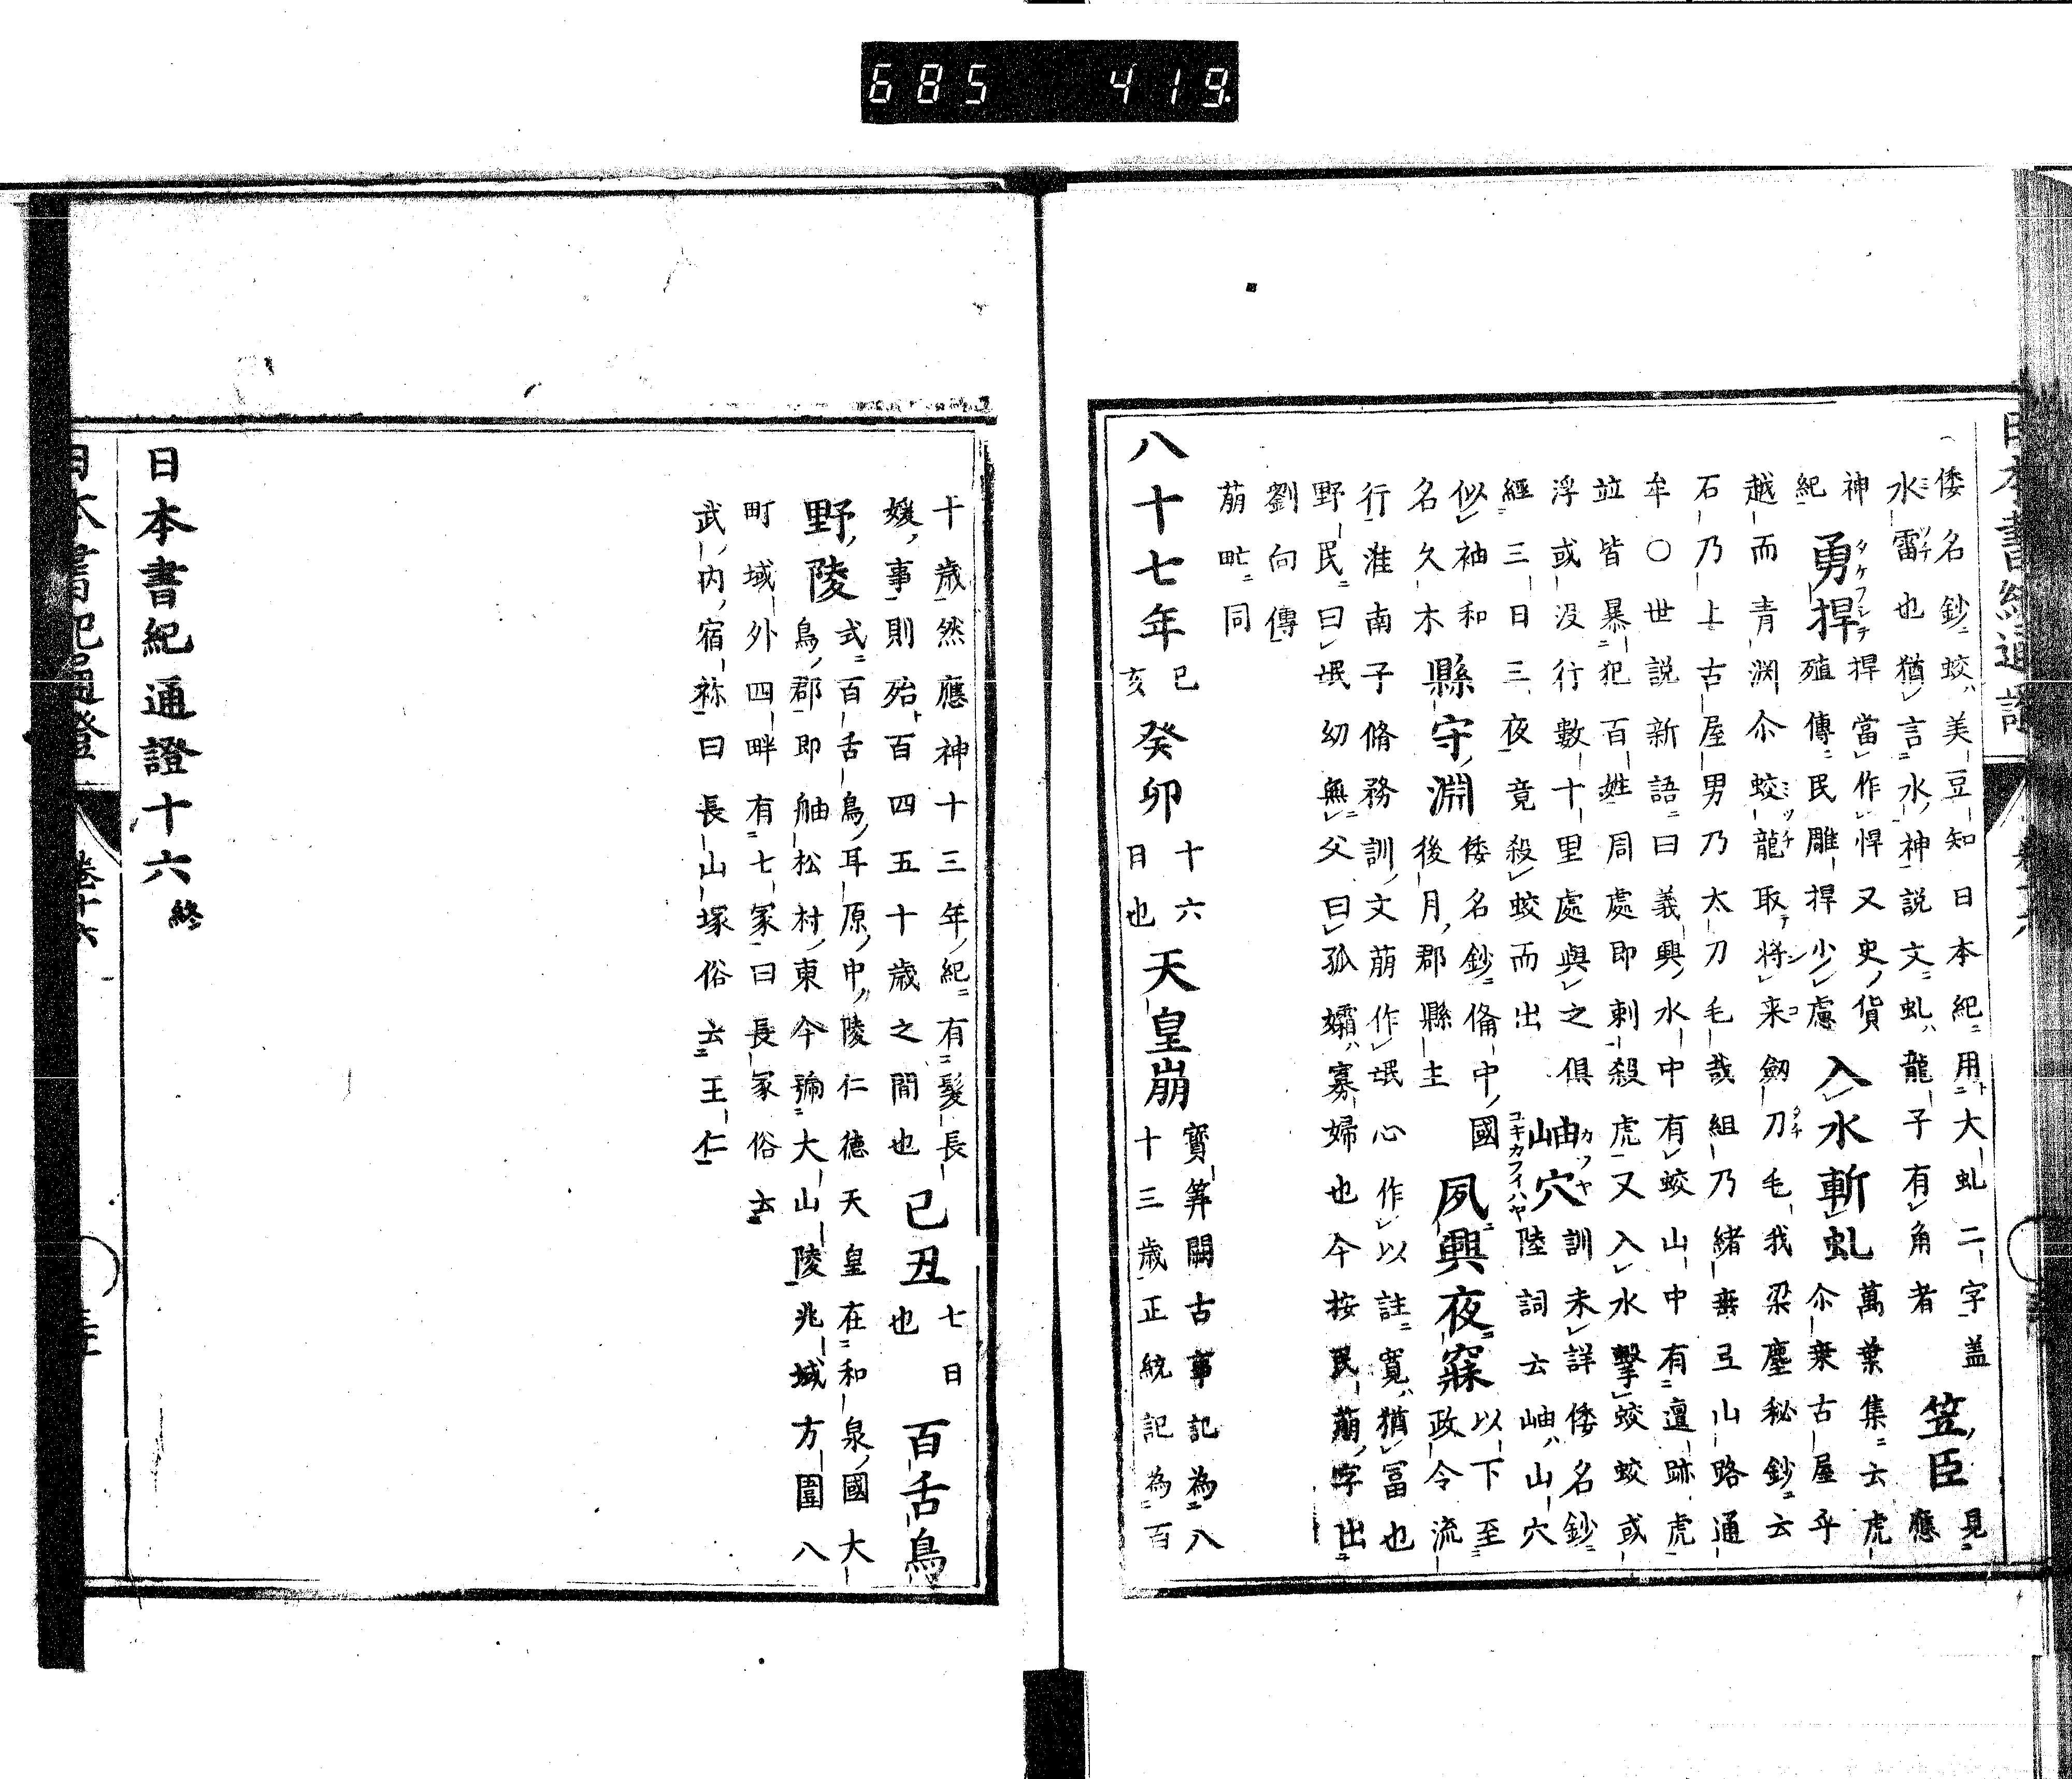 倭名鈔蛟美豆知日本紀用大虬二字盖
水雷也猶言水神説文虬龍子有角者
笠臣 見應
神紀
勇悍 悍當作悍又史貨殖傳民雕悍少慮
入水斬虬 萬葉集云虎尒乗古屋乎
越而青渊尒蛟龍取将来劒刀毛我梁塵秘鈔云
石乃上古屋男乃太刀毛哉組乃緒垂弖山路通
牟〇世説新語曰義興水中有蛟山中有邅跡虎
竝皆暴犯百姓周處即刺殺虎又入水擊蛟蛟或
浮或没行數十里處與之俱
經三日三夜竟殺蛟而出
岫穴 訓未詳倭名鈔陸詞云岫山穴
似袖和名久木
縣守淵 倭名鈔備中國後月郡縣主
夙興夜寐 以下至政令流
行淮南子脩務訓文萠作氓心作以註寛猶冨也
野民曰氓幼無父曰孤孀寡婦也今按民萠字出
劉向傳
萠甿同
八十七年 己亥 癸卯 十六日也 天皇崩 寳筭闕古事記為八十三歳正統記為百
十歳然應神十三年紀有髮長
媛事則殆百四五十歳之間也
己丑 七日也 百舌鳥
野陵 式百舌鳥耳原中陵仁德天皇在和泉國大
鳥郡即舳松村東今號大山陵兆域方圍八
町域外四畔有七冢曰長冢俗云
武内宿祢曰長山塚俗云王仁
日本書紀通證十六 終
日本書紀通證 卷十六
685 419